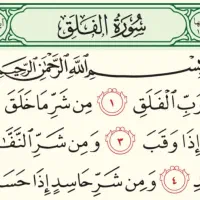 سُورَةُ الفَلَقِ
بِسْمِ اللَّهِ الرَّحْمَٰنِ الرَّحِيمِ
رَبِّ ٱلْفَلَقِ ١ مِن شَرِّ مَا خَلَقَ
إِذَا وَقَبَ ٣ وَمِن شَرِّ ٱلنَّفَّـ
٤ وَمِن شَرِّ حَاسِدٍ إِذَا حَسَدَ